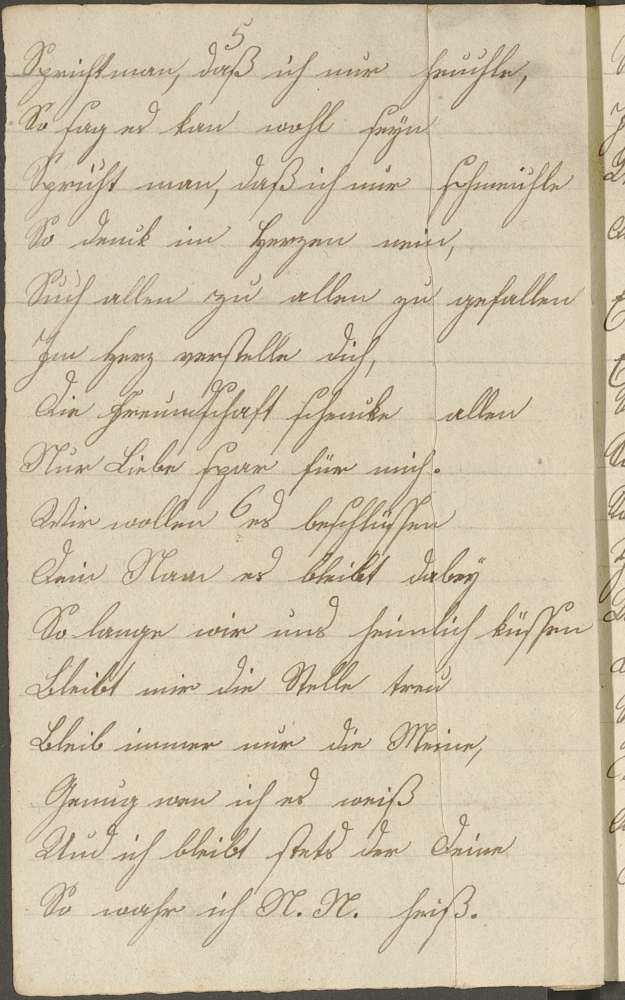 5
Sprichtman, daß ich nur heuchle,
So sag es kan wohl seyn
Spricht man, daß ich nur schmeichle
So denk im Herzen nein,
Such allen zu allen zu gefallen
Im Herz verstelle dich,
Die Freundschaft schencke allen
Nur Liebe spar für mich.
6
Wir wollen es beschlüssen
Dein Nam es bleibt dabey
So lange wir uns heimlich küssen
Bleibt mir die Stelle treu
Bleib immer nur die Meine,
Genug wen ich es weiß
Und ich bleibt stets der Deine
So wahr ich N. N. heiß.